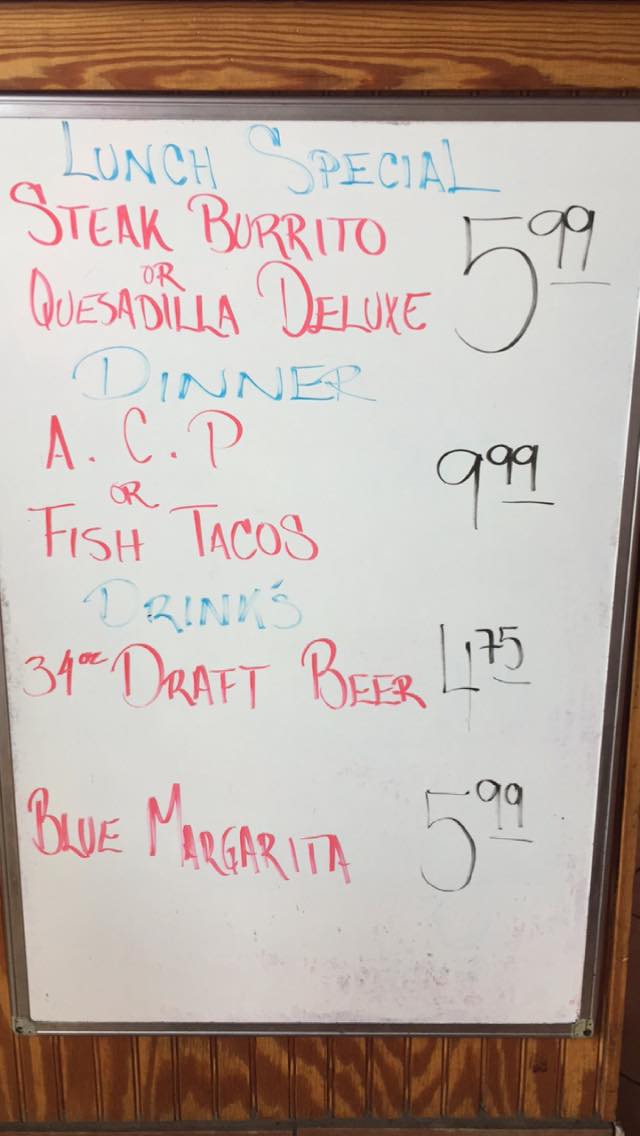 LUNCH SPECIAL
STEAK BURRITO
OR
QUESADILLA DELUXE 5.99
DINNER
A.C.P
OR 9.99
FISH TACOS
DRINK'S
34oz DRAFT BEER 4.75
BLUE MARGARITA 5.99